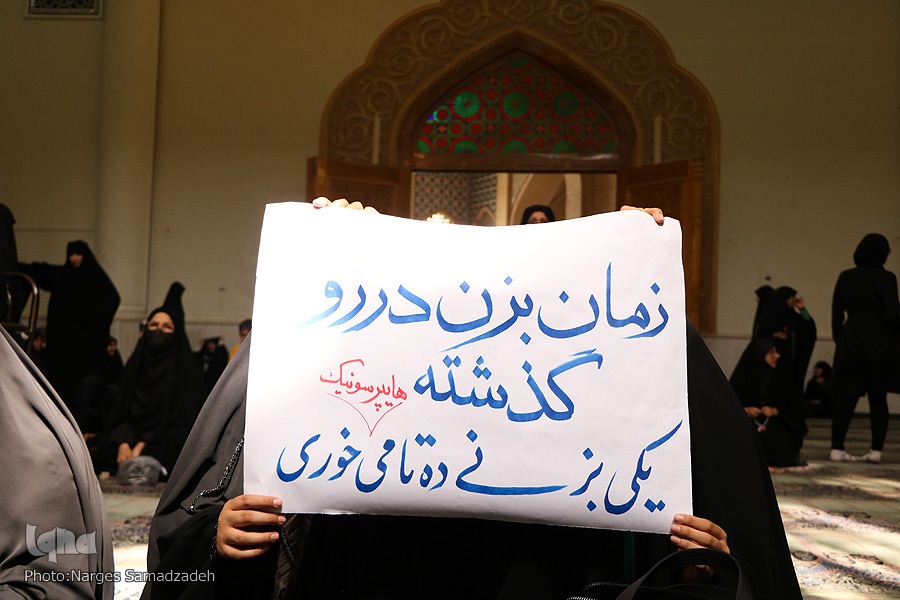 زمان بزن دررو
گذشته
هایپرسونیک
یکی بزنی ده تا می خوری
iqna
Photo:Narges Samadzadeh